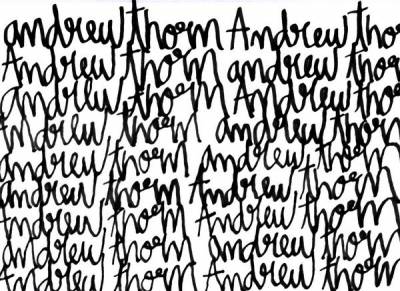 andrew thorn Andrew tho
Andrew thorn andrew thor
Andrew thorn Andrew tho
Andrew thorn andrew thorn
andrew thorn andrew, thorn
andrew, thorn Andrew, thorn
Andrew, thorn Andrew, thorn
andrew thorn andrew thorn
Andrew thorn Andrew thorn